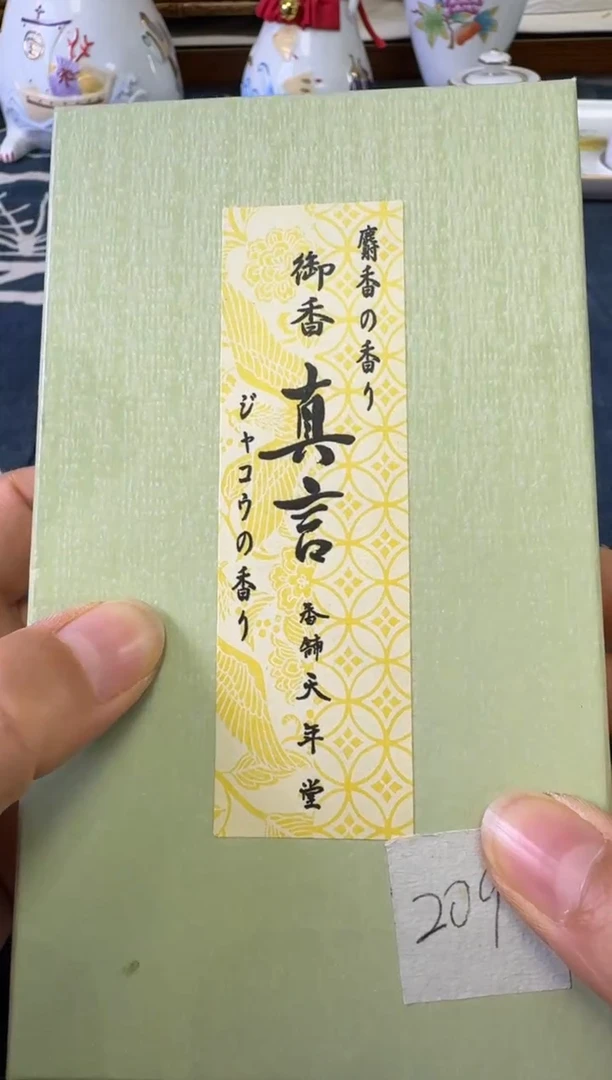 麝香の香り
御香 真言 香舗 天年堂
ジャコウの香り
209